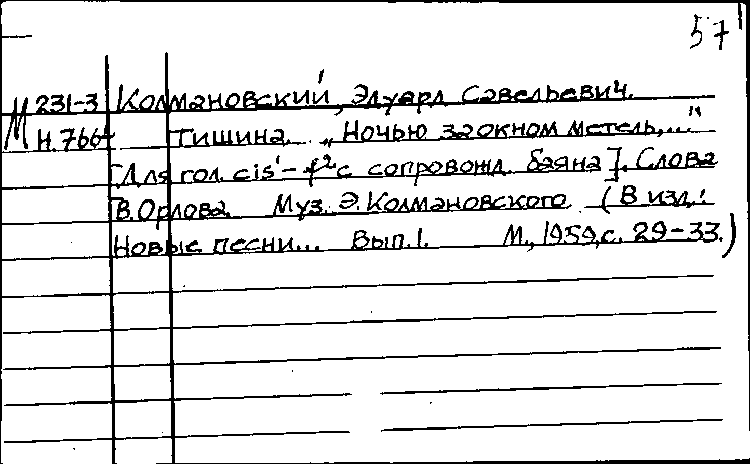 57
М 231-3 Колмановский, Эдуард Савельевич.
Н.7664 Тишина. „Ночью за окном метель,..."
[Для гол. cis¹-f² с сопровожд. баяна]. Слова
В.Орлова. Муз. Э.Колмановского. (В изд.:
Новые песни... Вып.1. М., 1959, с. 29-33.)